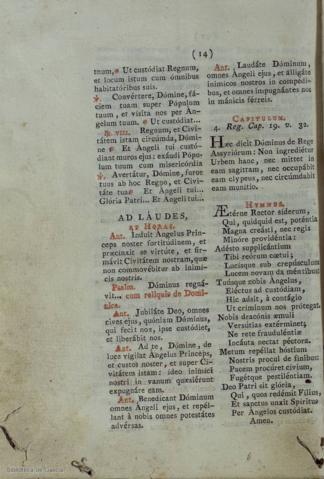 (14)
tuum, ℟ Ut custódiat Regnum,
et locum istum cum ómnibus
habitatóribus suis.
℣. Convértere, Dómine, fá-
ciem tuam super Pópulum
tuum, et visita nos per An-
gelum tuum. ℟ Ut custódiat...
℟. viii. Regnum, et Civi-
tátem istam circúmda, Dómi-
ne ℟ Et Angeli tui custó-
diant muros ejus: exáudi Pópu-
lum tuum cum misericórdia
℣. Avertátur, Dómine, furor
tuus ab hoc Regno, et Civi-
táte tua ℟ Et Angeli tui...
Glória Patri... Et Angeli tui...
AD LÁUDES,
ET HORAS.
Ant. Induit Angelus Prin-
ceps noster fortitúdinem, et
præcínxit se virtúte, et fir-
mávit Civitátem nostram, quæ
non commovébitur ab inimí-
cis nostris.
Psalm. Dóminus regná-
vit... cum reliquis de Domí-
nica.
Ant. Jubiláte Deo, omnes
cives ejus, quóniam Dóminus,
qui fecit nos, ipse custódiet,
et liberábit nos.
Ant. Ad te, Dómine, de
luce vígilat Angelus Princeps,
et custos noster, et super Ci-
vitátem istam: ideo inimíci
nostri in vanum quæsiérunt
expugnáre eam.
Ant. Benedícant Dóminum
omnes Angeli ejus, et repél-
lant à nobis omnes potestátes
advérsas.
Ant. Laudáte Dóminum,
omnes Angeli ejus, et alligáte
inimícos nostros in compédi-
bus, et omnes impugnántes nos
in mánicis férreis.
CAPITULUM.
4. Reg. Cap. 19. v. 32.
Hæc dicit Dóminus de Rege
Assyriórum: Non ingrediétur
Urbem hanc, nec mittet in
eam sagíttam, nec occupábit
eam clypeus, nec circúmdabit
eam munítio.
HYMNUS.
Ætérne Rector síderum,
Qui, quidquid est, poténtia
Magna creásti, nec regis
Minóre providéntia:
Adésto supplicántium
Tibi reórum cœtui;
Lucísque sub crepúsculum
Lucem novam da méntibus.
Tuúsque nobis Angelus,
Eléctus ad custódiam,
Hic adsit, à contágio
Ut críminum nos prótegat.
Nobis dracónis æmuli
Versútias extérminet;
Ne rete fraudulentiæ
Incáuta nectat péctora.
Metum repéllat hóstium
Nostris procul de fínibus:
Pacem procúret cívium,
Fugétque pestiléntiam.
Deo Patri sit glória,
Qui, quos redémit Fílius,
Et sanctus unxit Spíritus
Per Angelos custódiat.
Amen.
Biblioteca de Galicia